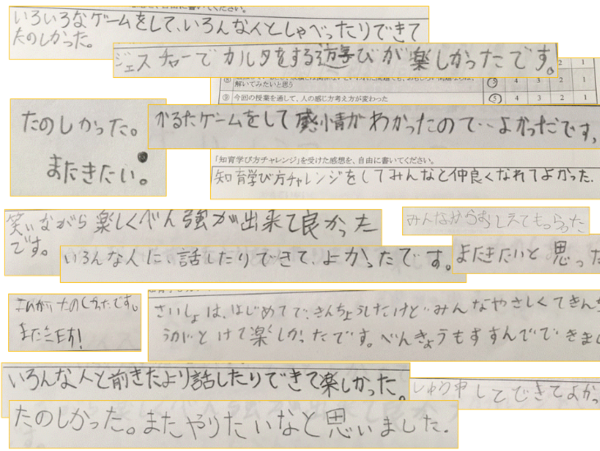 いろいろなゲームをして、いろんな人としゃべったりできて
たのしかった。
ジェスチャーでカルタをする遊びが楽しかったです。
解いてみたいと思う
③ 今回の授業を通して、人の感じ方考え方が変わった
5 4 3 2 1
たのしかった。
またきたい。
かるたゲームをして感情がわかったので‥よかったです。
「知育学び方チャレンジ」を受けた感想を、自由に書いてください。
知育学び方チャレンジをしてみんなと仲良くなれてよかった。
笑いながら楽しくべん強が出来て良かった
です。
みんなから
もらった
いろんな人に、話したりできて、よかったです。
またきたいと思った
たのしかったです。
また
さいしょは、はじめてで、きんちょうしたけどみんなやさしくてきん
とけて楽しかったです。べんきょうもすすんでできまし
いろんな人と前きたより話したりできて楽しかった。
してできてよかっ
たのしかった。またやりたいなと思いました。